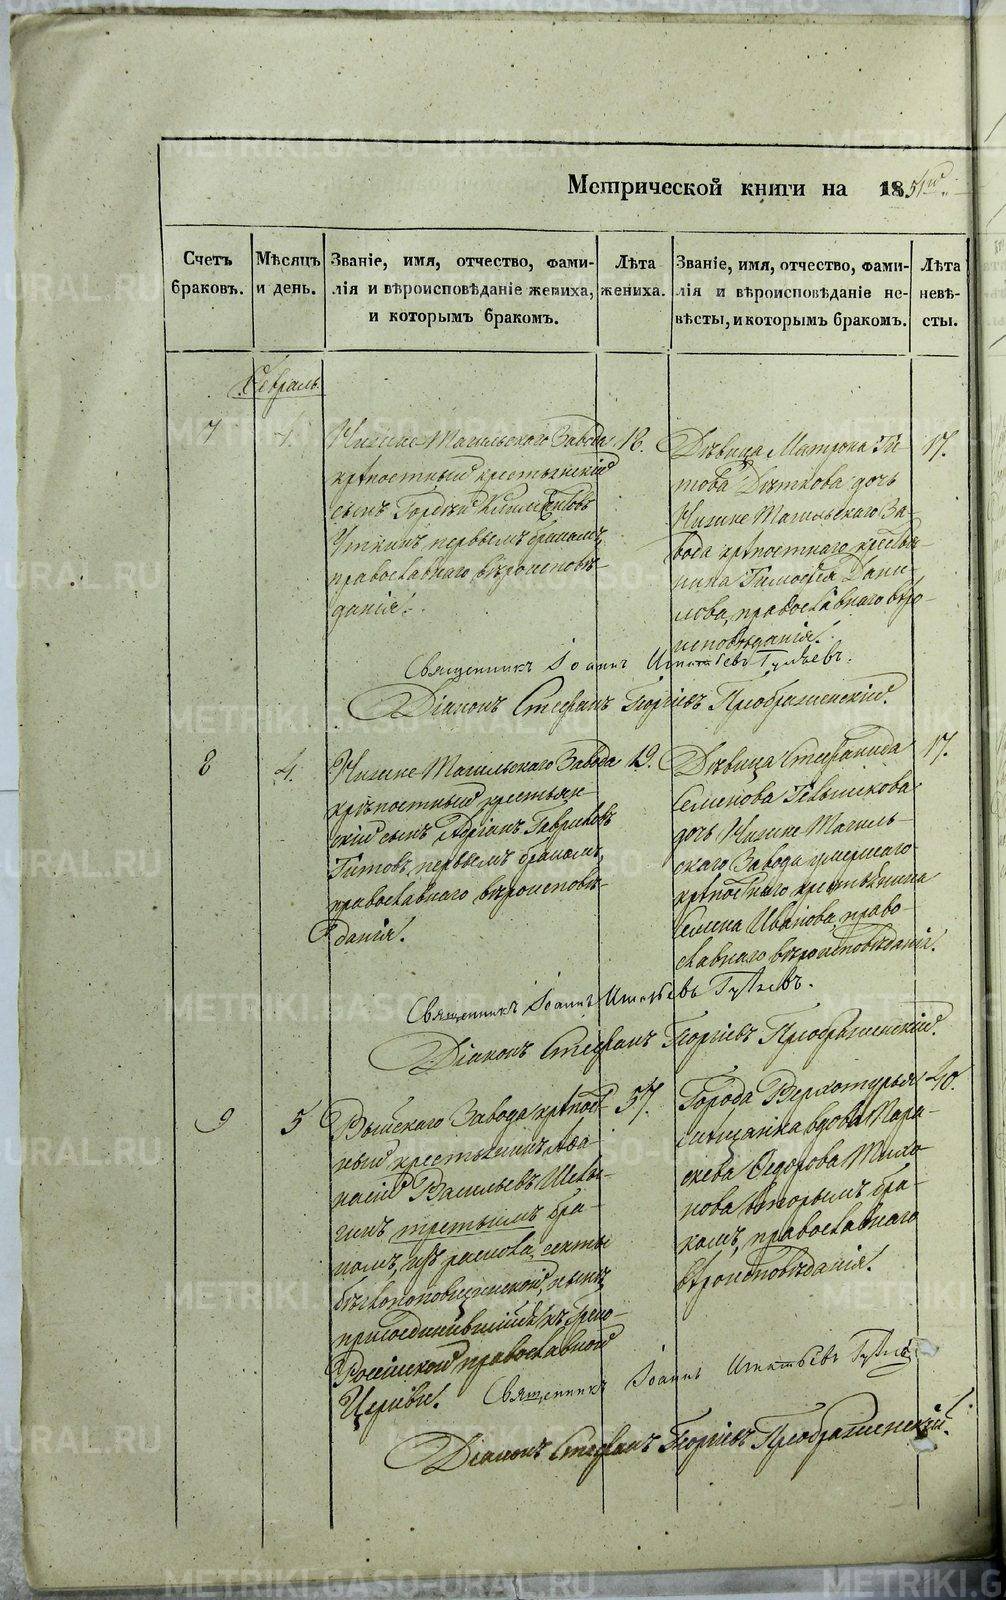 Метрической книги на 1851й
Счетъ браковъ.
Мѣсяцъ и день.
Званіе, имя, отчество, фами-
лія и вѣроисповѣданіе жениха,
и которымъ бракомъ.
Лѣта жениха.
Званіе, имя, отчество, фами-
лія и вѣроисповѣданіе не-
вѣсты, и которымъ бракомъ.
Лѣта невѣ-
сты.
Февраль.
7
4.
Нижне Тагильскаго Завода
крѣпостный крестьянскій
сынъ Гордѣй Климентовъ
Уткинъ, первымъ бракомъ,
православнаго вѣроисповѣ-
данія.
18.
Дѣвица Матрона Ти-
това дочь
Нижне Тагильскаго За-
вода крѣпостнаго крестья-
нина Тимофея Дани-
лова, православнаго вѣро-
исповѣданія.
17.
Священникъ Іоаннъ Игнатьевъ
Діаконъ Стефанъ Георгіевъ Преображенскій.
8
4.
Нижне Тагильскаго Завода
крѣпостный крестьян-
скій сынъ Адріанъ Гавриловъ
Титовъ, первымъ бракомъ,
православнаго вѣроисповѣ-
данія.
19.
Дѣвица Стефанида
Семенова
дочь Нижне Тагиль-
скаго Завода умершаго
крѣпостнаго крестьянина
Семена Иванова, право-
славнаго вѣроисповѣданія.
17.
Священникъ Іоаннъ Игнатьевъ
Діаконъ Стефанъ Георгіевъ Преображенскій.
9
5
Выйскаго Завода крѣпост-
ный крестьянинъ Афа-
насій Васильевъ
третьимъ бра-
комъ, изъ раскола, секты
бѣглопоповщинской, нынѣ
присоединившійся къ Греко-
Россійской православной
Церкви.
57.
Города Верхотурья
мѣщанка вдова Пара-
скева Ѳедорова
вторымъ бра-
комъ, православнаго
вѣроисповѣданія.
40.
Священникъ Іоаннъ Игнатьевъ
Діаконъ Стефанъ Георгіевъ Преображенскій.
METRIKI.GASO-URAL.RU